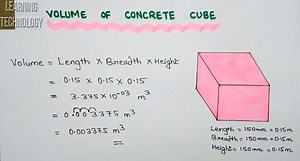 LEARNING
TECHNOLOGY
VOLUME OF CONCRETE CUBE
Volume = Length × Breadth × Height
= 0.15 × 0.15 × 0.15
= 3.375 × 10⁻⁰³ m³
= 0.003375 m³
= 0.003375 m³
Length = 150mm = 0.15m
Breadth = 150mm = 0.15m
Height = 150mm = 0.15m